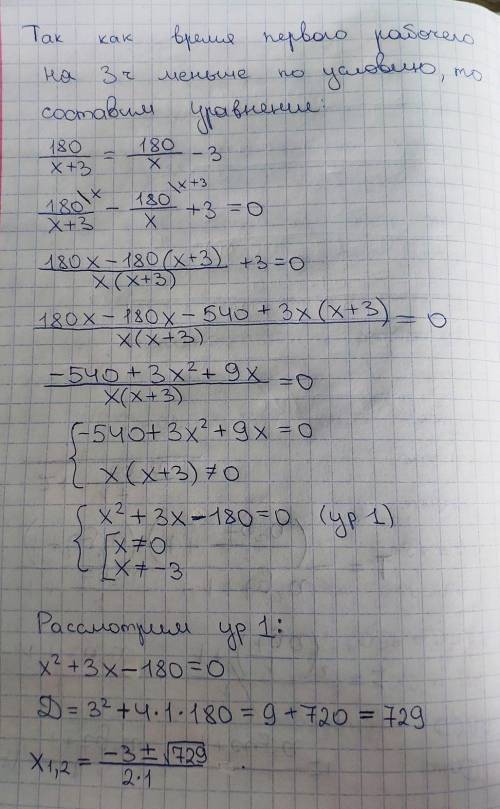 Так как время первого рабочего
на 3ч меньше по условию, то
составим уравнение:
180/(x+3) = 180/x - 3
180\x/(x+3) - 180\x+3/x + 3 = 0
(180x - 180(x+3))/(x(x+3)) + 3 = 0
(180x - 180x - 540 + 3x(x+3))/(x(x+3)) = 0
(-540 + 3x² + 9x)/(x(x+3)) = 0
{ -540 + 3x² + 9x = 0
x(x+3) ≠ 0
{ x² + 3x - 180 = 0 (ур 1)
[ x ≠ 0
x ≠ -3
Рассмотрим ур 1:
x² + 3x - 180 = 0
D = 3² + 4·1·180 = 9 + 720 = 729
x1,2 = (-3 ± √729)/(2·1)